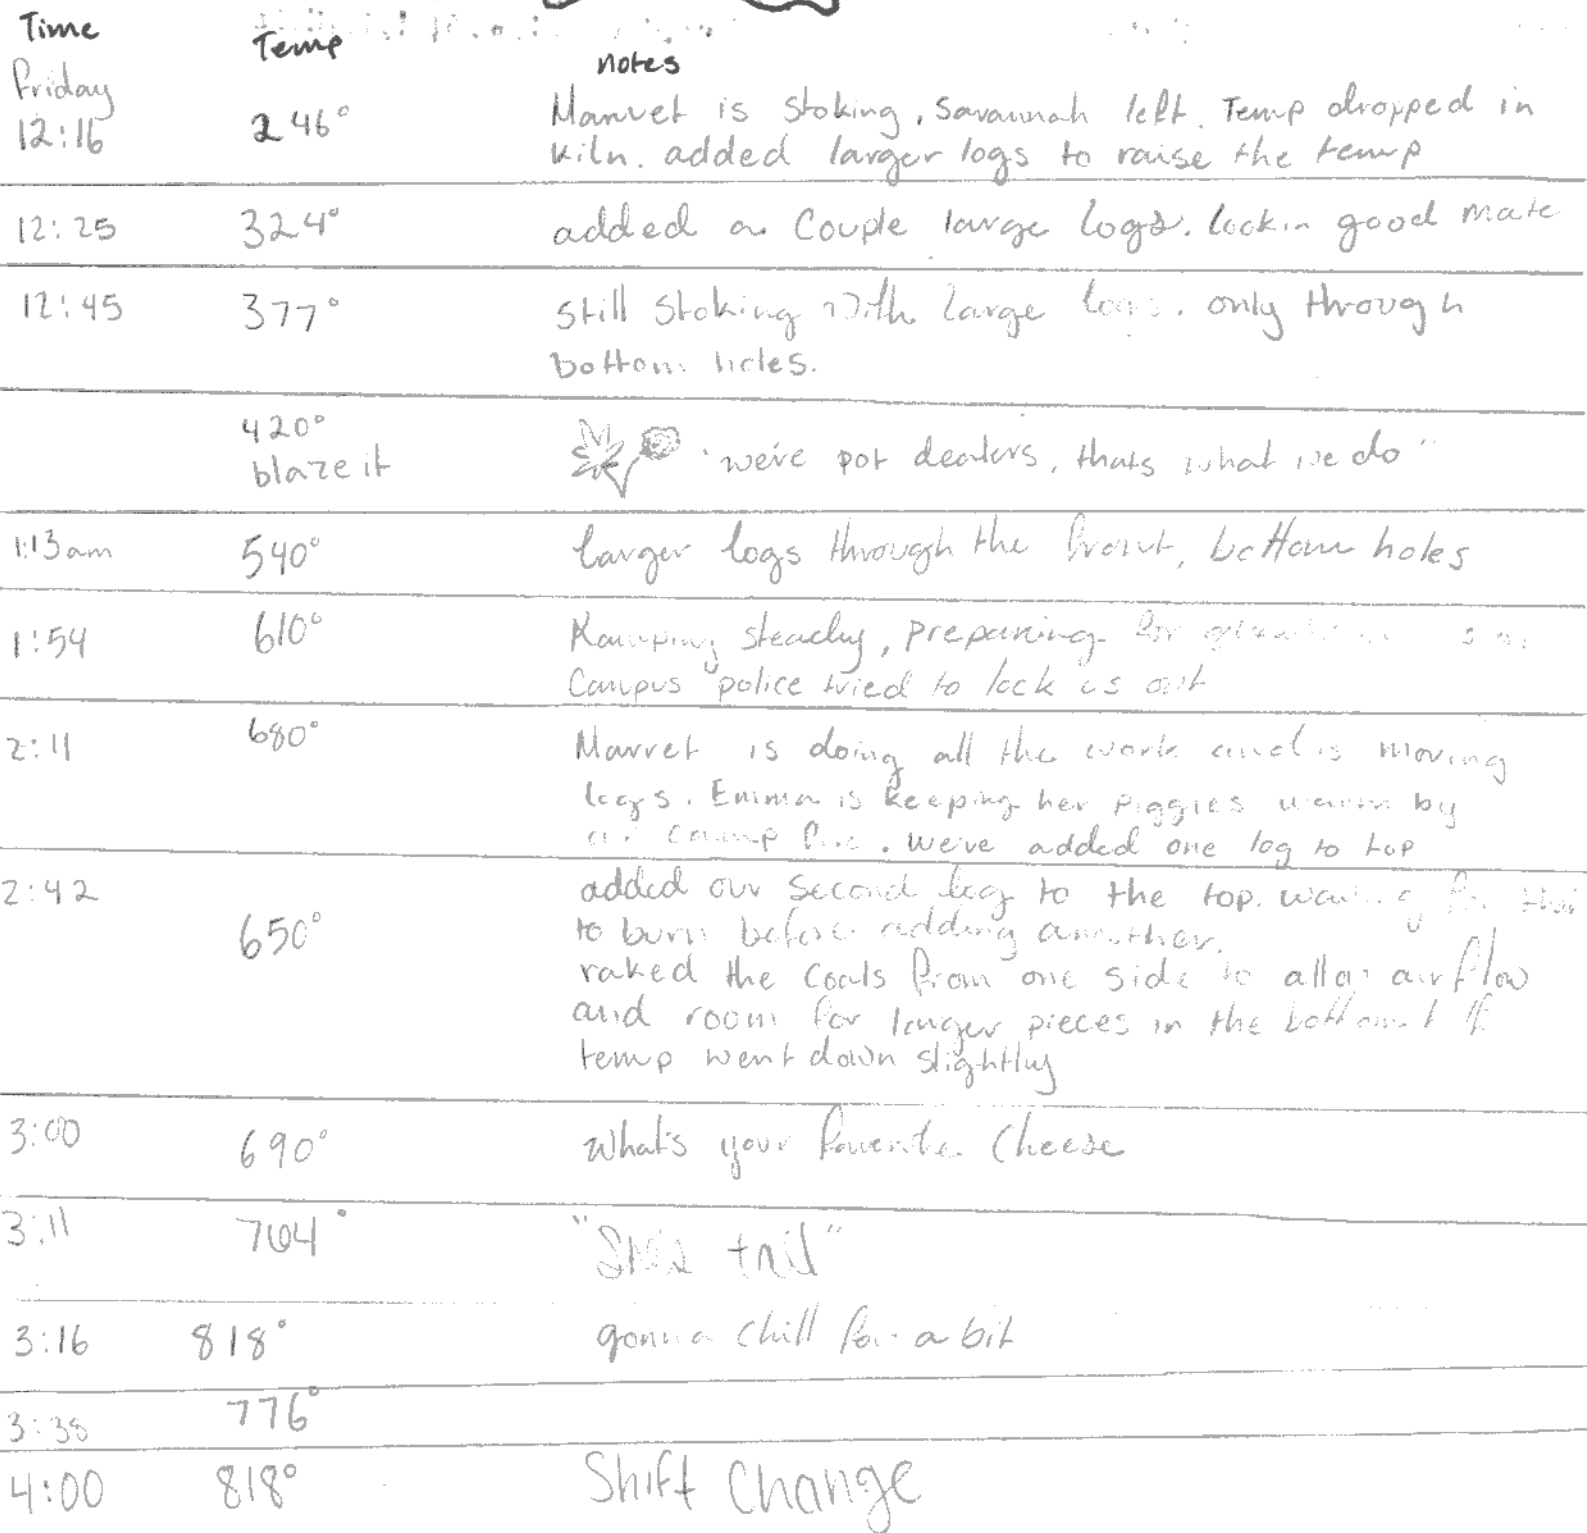 Time Temp notes
Friday
12:16 246° Marvet is stoking, Savannah left. Temp dropped in
kiln. added larger logs to raise the temp
12:25 324° added a couple large logs. lookin good mate
12:45 377° still stoking with large logs. only through
bottom holes.
420° "we're pot dealers, thats what we do"
blaze it
1:13am 540° larger logs through the front, bottom holes
1:54 610° Ramping steady, preparing for
Campus police tried to lock us out
2:11 680° Marvet is doing all the work and is moving
logs. Emma is keeping her piggies warm by
camp fire. we've added one log to top
2:42 added our second log to the top. waiting for this
650° to burn before adding another.
raked the coals from one side to allow airflow
and room for larger pieces in the bottom
temp went down slightly
3:00 690° what's your favorite cheese
3:11 764° "
3:16 818° gonna chill for a bit
3:38 776°
4:00 818° Shift Change